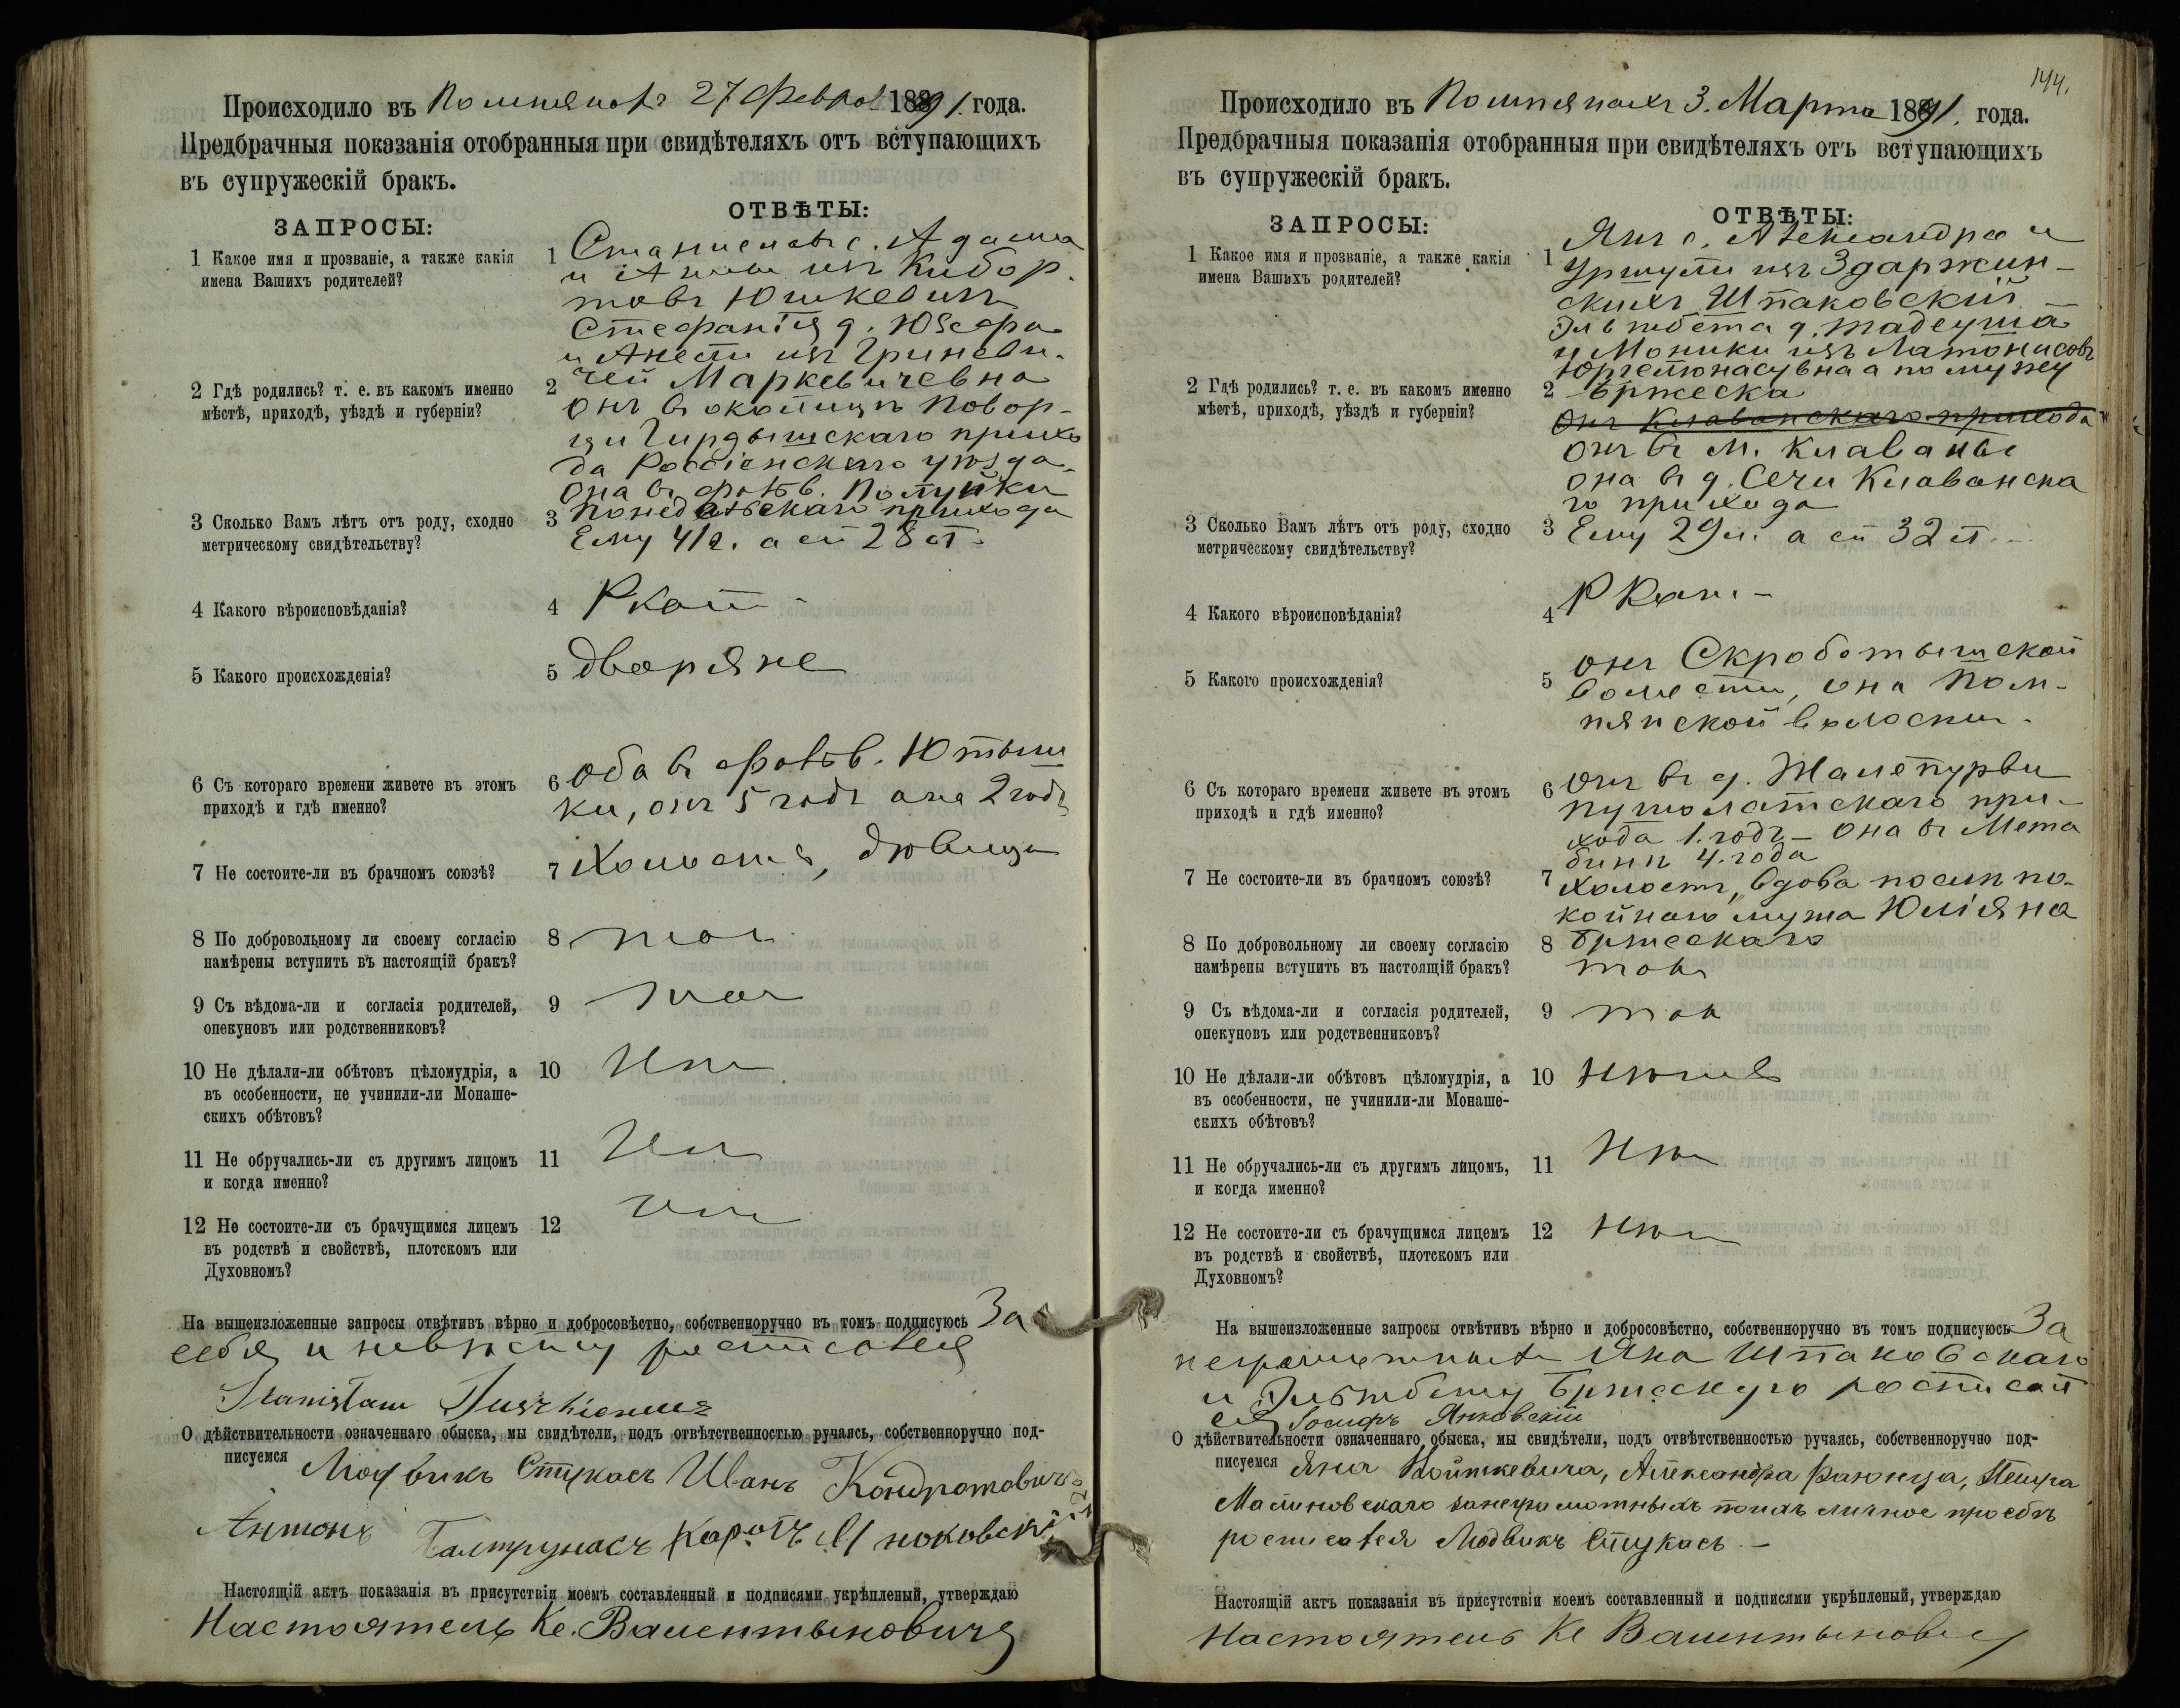 Происходило въ 27 Феврал 1891. года.
Предбрачныя показанія отобранныя при свидѣтеляхъ отъ вступающихъ
въ супружескій бракъ.
ЗАПРОСЫ:
ОТВѢТЫ:
1 Какое имя и прозваніе, а также какія
имена Вашихъ родителей?
1 Станиславъ с. Адама
и Анны изъ Кибор-
товъ Юшкевичъ
Стефанія д. Юзефа
и Анели изъ Гриневи-
чей Маркевичевна
2 Гдѣ родились? т. е. въ какомъ именно
мѣстѣ, приходѣ, уѣздѣ и губерніи?
2 онъ въ околицѣ Повор-
цы Гирдышскаго прихо
да Россіенскаго уѣзда
она въ фольв.
прихода
3 Сколько Вамъ лѣтъ отъ роду, сходно
метрическому свидѣтельству?
3 Ему 41 г. а ей 28 л.
4 Какого вѣроисповѣданія?
4 Ркат
5 Какого происхожденія?
5 дворяне
6 Съ котораго времени живете въ этомъ
приходѣ и гдѣ именно?
6 оба въ фольв. Ютыш
ки, онъ 5 годъ она 2 годъ
7 Не состоите-ли въ брачномъ союзѣ?
7 Холостъ, дѣвица
8 По добровольному ли своему согласію
намѣрены вступить въ настоящій бракъ?
8 такъ
9 Съ вѣдома-ли и согласія родителей,
опекуновъ или родственниковъ?
9 такъ
10 Не дѣлали-ли обѣтовъ цѣломудрія, а
въ особенности, не учинили-ли Монаше-
скихъ обѣтовъ?
10 Нѣтъ
11 Не обручались-ли съ другимъ лицомъ
и когда именно?
11 Нѣтъ
12 Не состоите-ли съ брачущимся лицемъ
въ родствѣ и свойствѣ, плотскомъ или
Духовномъ?
12 нѣтъ
На вышеизложенные запросы отвѣтивъ вѣрно и добросовѣстно, собственноручно въ томъ подписуюсь За
себя и невѣсту росписался
Stanisław Juszkiewicz
О дѣйствительности означеннаго обыска, мы свидѣтели, подъ отвѣтственностью ручаясь, собственноручно под-
писуемся Людвикъ Стукасъ Иванъ Кондратовичъ
Антонъ Балтрунасъ Кароль
Настоящій актъ показанія въ присутствіи моемъ составленный и подписями укрѣпленый, утверждаю
Настоятель Кс. Валентыновичъ
144.
Происходило въ 3. Марта 1891. года.
Предбрачныя показанія отобранныя при свидѣтеляхъ отъ вступающихъ
въ супружескій бракъ.
ЗАПРОСЫ:
ОТВѢТЫ:
1 Какое имя и прозваніе, а также какія
имена Вашихъ родителей?
1 Янъ с. Александра и
Уршули изъ Здаржин-
скихъ Шпаковскій
Эльжбета д. Тадеуша
и Моники изъ Латонисовъ
а по мужу
Бржеска
2 Гдѣ родились? т. е. въ какомъ именно
мѣстѣ, приходѣ, уѣздѣ и губерніи?
2 онъ Клованскаго прихода
онъ въ м. Клованы
она въ д. Сечи Клованска
го прихода
3 Сколько Вамъ лѣтъ отъ роду, сходно
метрическому свидѣтельству?
3 Ему 29 л. а ей 32 л.
4 Какого вѣроисповѣданія?
4 РКат.
5 Какого происхожденія?
5 онъ Скроботышской
волости, она Пом-
пянской волости.
6 Съ котораго времени живете въ этомъ
приходѣ и гдѣ именно?
6 онъ въ д.
при-
хода 1. годъ - она въ Мета
4. года
7 Не состоите-ли въ брачномъ союзѣ?
7 Холостъ, вдова послѣ по-
койнаго мужа Юліяна
Бржескаго
8 По добровольному ли своему согласію
намѣрены вступить въ настоящій бракъ?
8 такъ
9 Съ вѣдома-ли и согласія родителей,
опекуновъ или родственниковъ?
9 такъ
10 Не дѣлали-ли обѣтовъ цѣломудрія, а
въ особенности, не учинили-ли Монаше-
скихъ обѣтовъ?
10 Нѣтъ
11 Не обручались-ли съ другимъ лицомъ,
и когда именно?
11 Нѣтъ
12 Не состоите-ли съ брачущимся лицемъ
въ родствѣ и свойствѣ, плотскомъ или
Духовномъ?
12 Нѣтъ
На вышеизложенные запросы отвѣтивъ вѣрно и добросовѣстно, собственноручно въ томъ подписуюсь За
неграмотныхъ Яна Шпаковскаго
и Эльжбету Бржескую росписал
ся Іосифъ Янковскій
О дѣйствительности означеннаго обыска, мы свидѣтели, подъ отвѣтственностью ручаясь, собственноручно под-
писуемся Яна Войткевича, Александра Раюнца, Петра
Малиновскаго занеграмотныхъ поихъ личное просбѣ
росписался Людвикъ Стукасъ. -
Настоящій актъ показанія въ присутствіи моемъ составленный и подписями укрѣпленый, утверждаю
Настоятель Кс Валентыновичъ